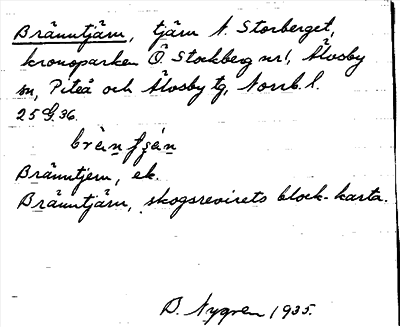 Bränntjärn, tjärn N. Storberget,
kronoparken Ö. Stockberg nr 1, Älvsby
sn, Piteå och Älvsby tg, Norrb. l.
25 G 36.
Bränntjern, ek.
Bränntjärn, skogsrevirets block-karta.
D. Nygren 1935.